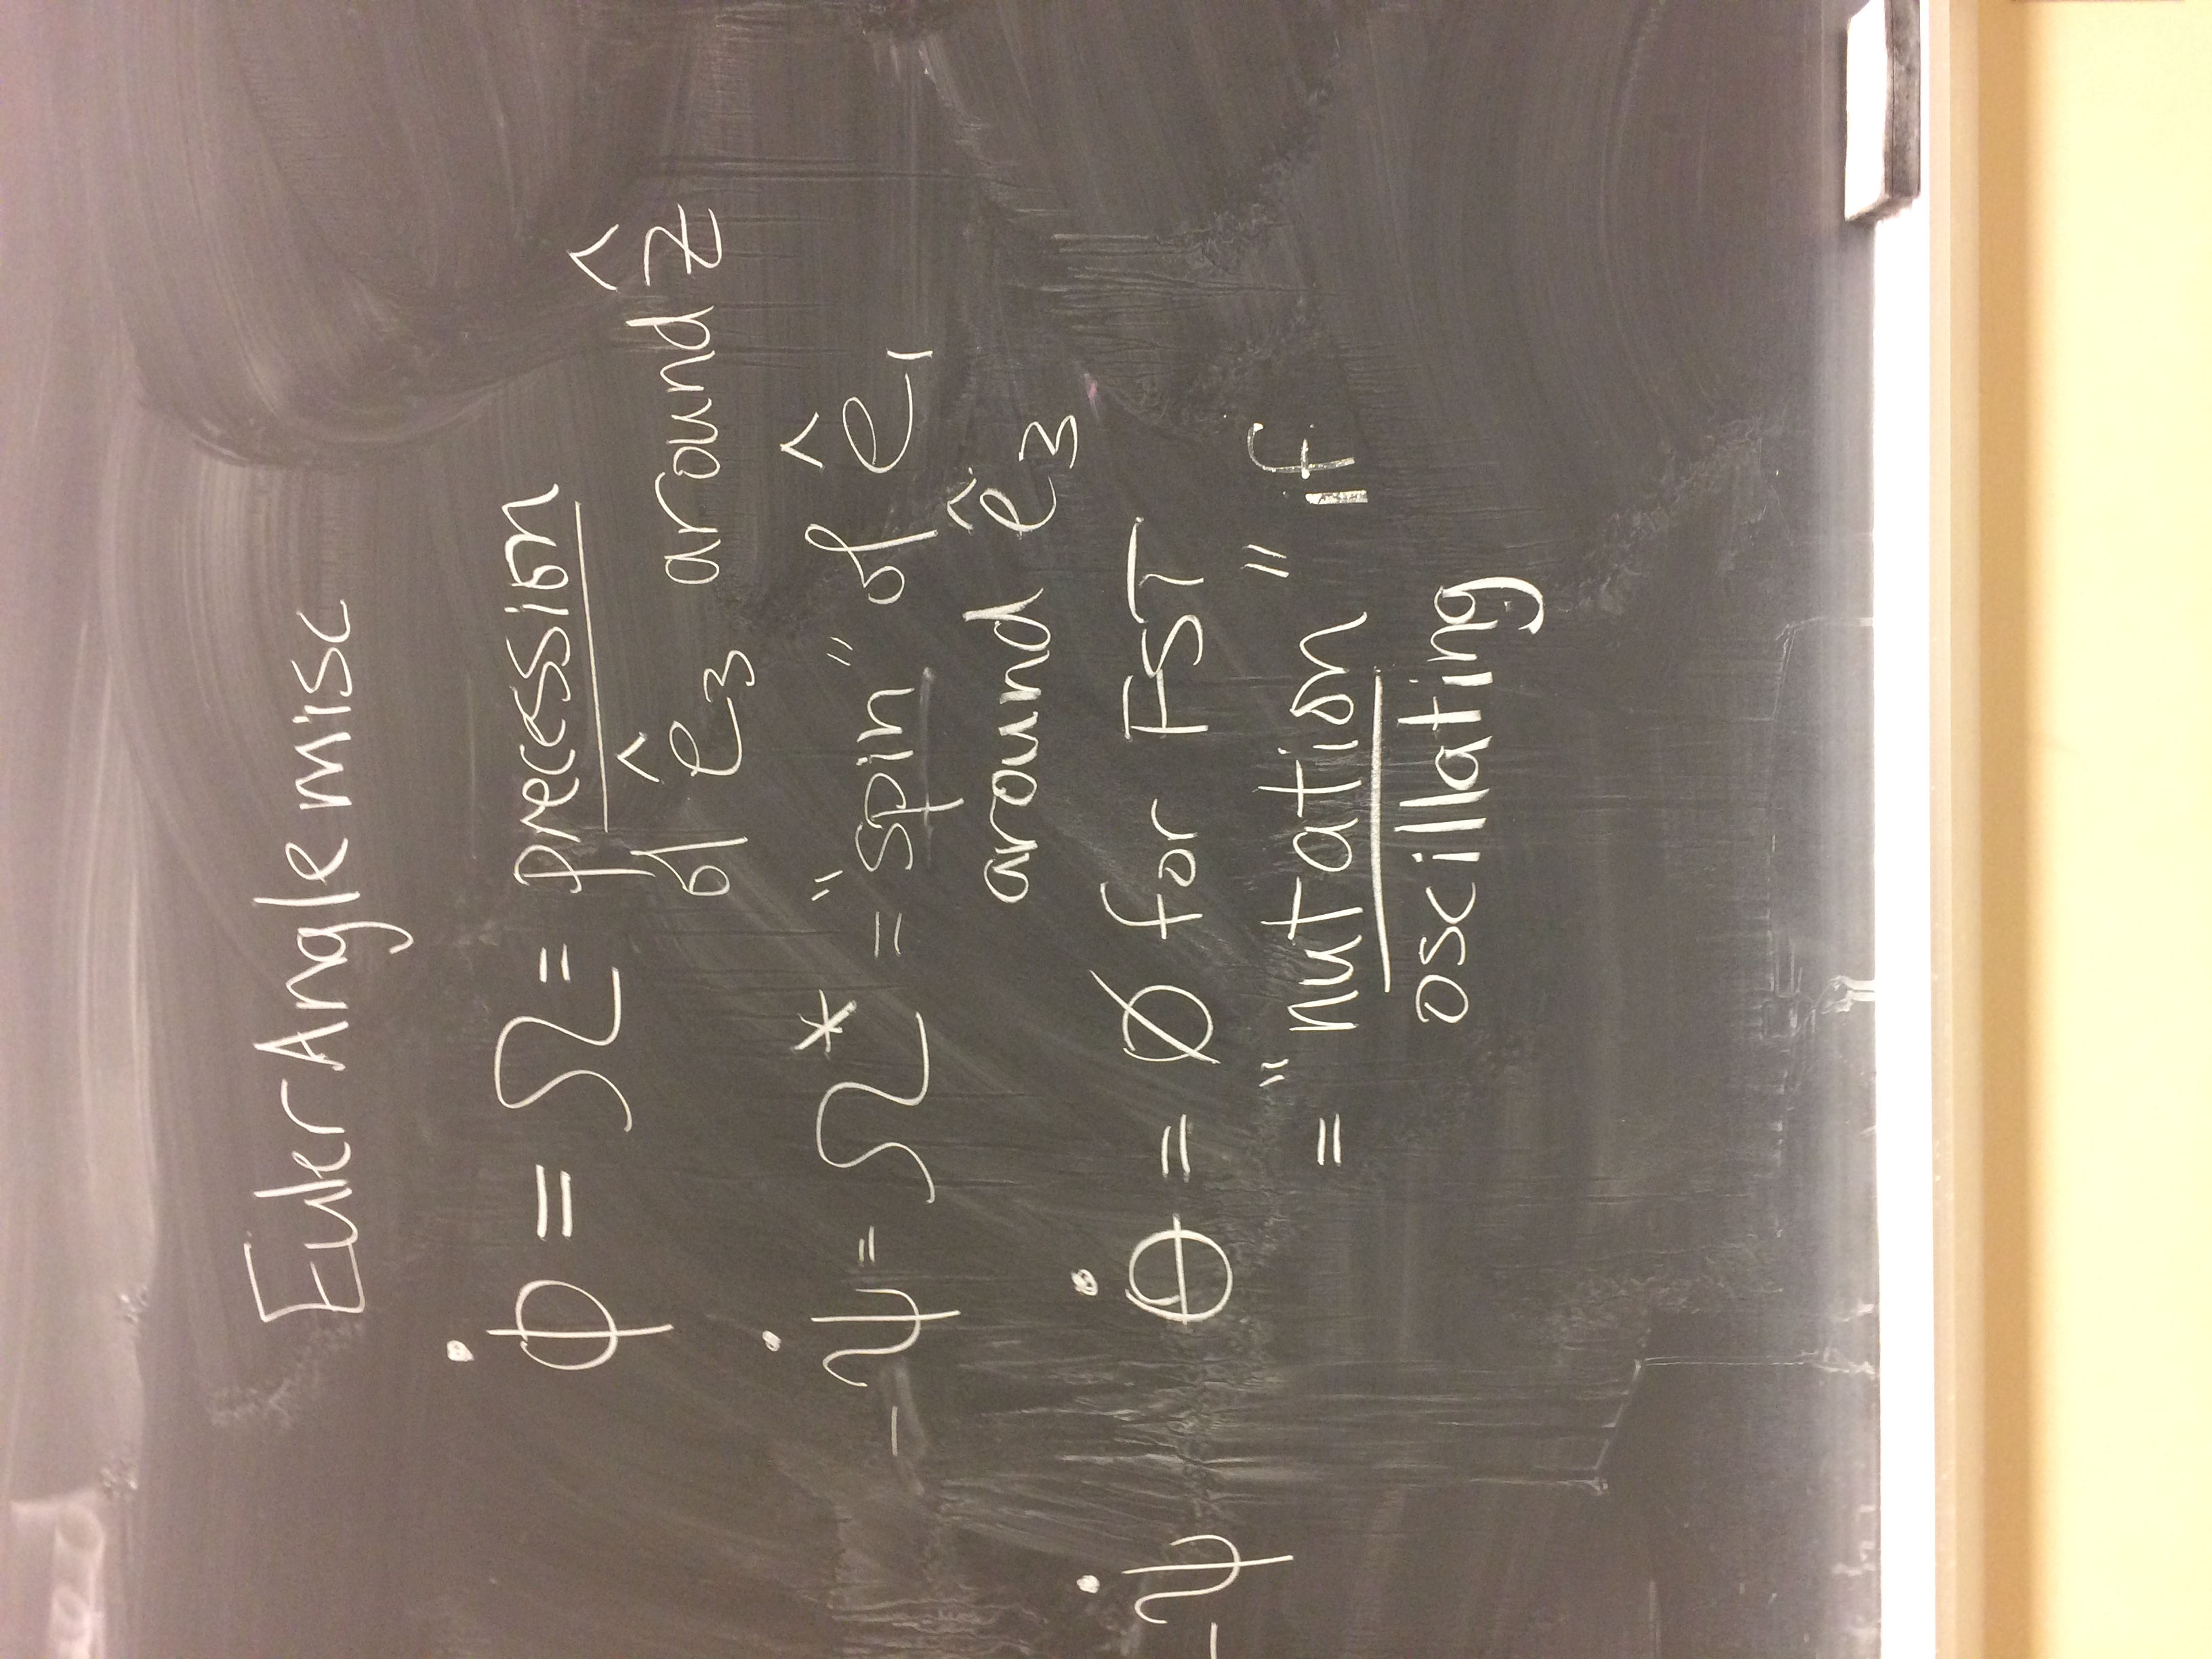 Euler Angle misc
φ̇ = Ω = precession
of ê₃ around ẑ
-ψ̇ = Ω* = "spin" of ê₁
around ê₃
θ̇ = Ø for FST
= "nutation" if
oscillating
-ψ̇